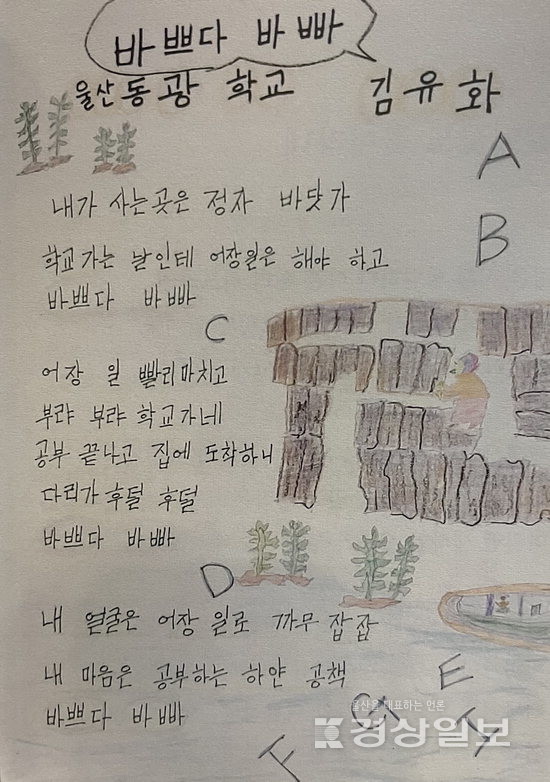 바쁘다 바빠
울산동광 학교 김유화
A
내가 사는곳은 정자 바닷가
B
학교가는 날인데 어장일은 해야 하고
바쁘다 바빠
C
어장 일 빨리마치고
부랴 부랴 학교가네
공부 끝나고 집에 도착하니
다리가 후덜 후덜
바쁘다 바빠
D
내 얼굴은 어장 일로 까무 잡잡
내 마음은 공부하는 하얀 공책
E
바쁘다 바빠
울산을 대표하는 언론
경상일보